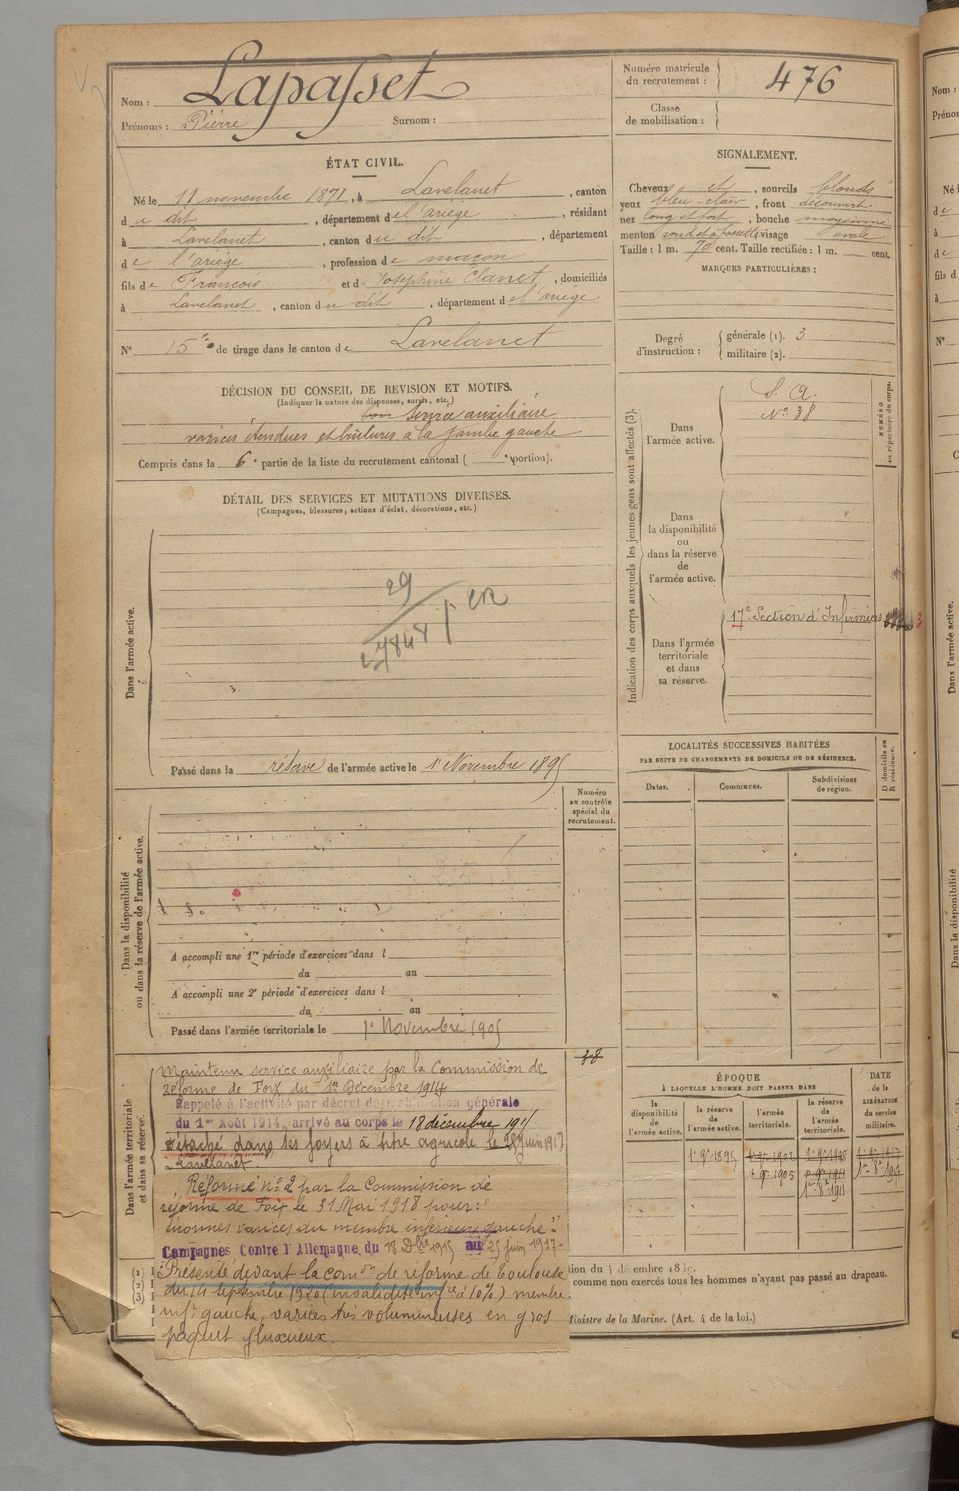 Nom : Lapasset
Prénoms : Pierre Surnom :
Numéro matricule du recrutement : 476
Classe de mobilisation :
ÉTAT CIVIL.
Né le 11 novembre 1871, à Lavelanet, canton
du dit, département de l'ariège, résidant
à Lavelanet, canton du dit, département
de l'ariège, profession de maçon
fils de François et de Josephine Clanet, domiciliés
à Lavelanet, canton du dit, département de l'ariège
No 15 de tirage dans le canton de Lavelanet
SIGNALEMENT.
Cheveux et, sourcils blonds
yeux bleu-clair, front découvert
nez long et fort, bouche moyenne
menton rond et à fossette, visage ovale
Taille : 1 m. 70 cent. Taille rectifiée : 1 m. cent.
MARQUES PARTICULIÈRES :
Degré d'instruction : générale (1). 3
militaire (2).
DÉCISION DU CONSEIL DE REVISION ET MOTIFS.
(Indiquer la nature des dispenses, sursis, etc.)
bon Service auxiliaire
varices étendues et brûlures à la jambe gauche
Compris dans la 6e partie de la liste du recrutement cantonal ( e portion).
DÉTAIL DES SERVICES ET MUTATIONS DIVERSES.
(Campagnes, blessures, actions d'éclat, décorations, etc.)
Dans l'armée active.
29
Passé dans la réserve de l'armée active le 1 Novembre 1895
Indication des corps auxquels les jeunes gens sont affectés (3).
NUMÉRO au répertoire du corps.
Dans l'armée active.
S. A.
No 38
Dans la disponibilité ou dans la réserve de l'armée active.
Dans l'armée territoriale et dans sa réserve.
17e Section d'Infirmiers
3
LOCALITÉS SUCCESSIVES HABITÉES
PAR SUITE DE CHANGEMENTS DE DOMICILE OU DE RÉSIDENCE.
Dates. Communes. Subdivisions de région.
D domicile ou R résidence.
Dans la disponibilité ou dans la réserve de l'armée active.
Numéro au contrôle spécial du recrutement.
A accompli une 1re période d'exercices dans l
du au
A accompli une 2e période d'exercices dans l
du au
Passé dans l'armée territoriale le 1r Novembre 1905
Dans l'armée territoriale et dans sa réserve.
38
Maintenu service auxiliaire par la Commission de
réforme de Foix du 1er Décembre 1914
Rappelé à l'activité par décret de mobilisation générale
du 1er Août 1914, arrivé au corps le 18 décembre 1915
Détaché dans ses foyers à titre agricole le 25 juin 1917
à Lavelanet.
Réformé no 2 par la Commission de
réforme de Foix le 31 Mai 1918 pour :
"énormes varices du membre inférieur gauche"
Campagnes Contre l'Allemagne, du 18 Dbre 1915 au 25 juin 1917-
Présenté devant la comon de réforme de Toulouse
du 14 septembre 1920 (invalidité infre à 10%) membre
inf. gauche, varices très volumineuses en gros
paquet fluxueux.
ÉPOQUE
À LAQUELLE L'HOMME DOIT PASSER DANS
la disponibilité de l'armée active.
la réserve de l'armée active.
l'armée territoriale.
la réserve de l'armée territoriale.
DATE de la LIBÉRATION du service militaire.
1r 9e 1895
9e 1905
1r 8e 1911
1r 8e 1917
tion du 4 décembre 1889.
comme non exercés tous les hommes n'ayant pas passé au drapeau.
Ministre de la Marine. (Art. 4 de la loi.)